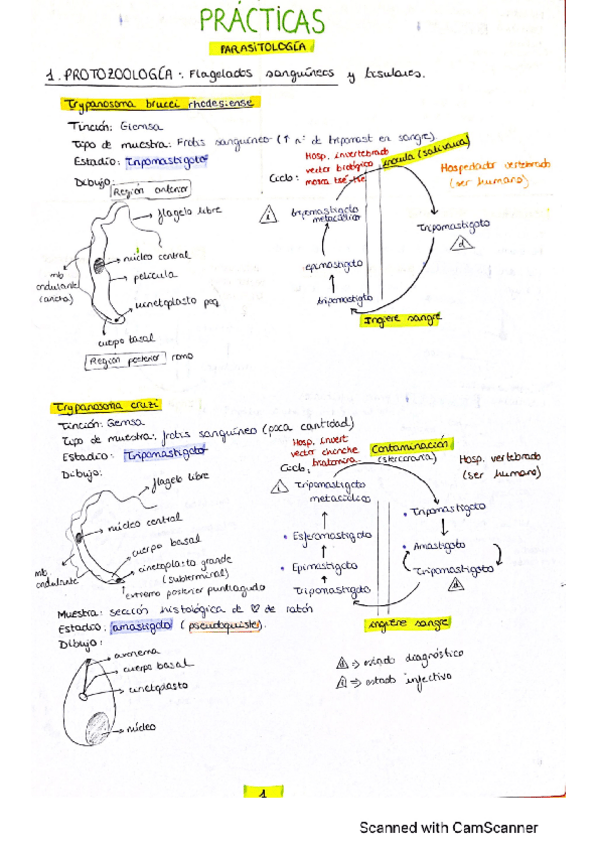 PRÁCTICAS
PARASITOLOGÍA
1. PROTOZOOLOGÍA: Flagelados sanguíneos y tisulares.
Trypanosoma brucei rhodesiense
Tinción: Giemsa
Tipo de muestra: Frotis sanguíneo (↑ nº de tripomast en sangre).
Estadío: Tripomastigoto
Dibujo:
Región anterior
flagelo libre
núcleo central
película
mb ondulante (ancha)
cinetoplasto peq
cuerpo basal
Región posterior romo
Ciclo:
Hosp. invertebrado
vector biológico
mosca tse-tse
inocula (salivaria)
Hospedador vertebrado
(ser humano)
i
tripomastigoto
metacíclico
epimastigoto
tripomastigoto
Tripomastigoto
d
Ingiere sangre
Trypanosoma cruzi
Tinción: Gemsa
Tipo de muestra: frotis sanguíneo (poca cantidad)
Estadío: Tripomastigoto
Dibujo:
flagelo libre
núcleo central
cuerpo basal
cinetoplasto grande
(subterminal)
extremo posterior puntiagudo
mb ondulante
Ciclo:
Hosp. invert
vector chinche
triatomina
Contaminación
(stercoraria)
Hosp. vertebrado
(ser humano)
i
Tripomastigoto
metacíclico
Esferomastigoto
Epimastigoto
Tripomastigoto
Tripomastigoto
Amastigoto
Tripomastigoto
d
ingiere sangre
Muestra: sección histológica de ♡ de ratón
Estadío: amastigoto (pseudoquiste).
Dibujo:
axonema
cuerpo basal
cinetoplasto
núcleo
d ⇒ estado diagnóstico
i ⇒ estado infectivo
1
Scanned with CamScanner